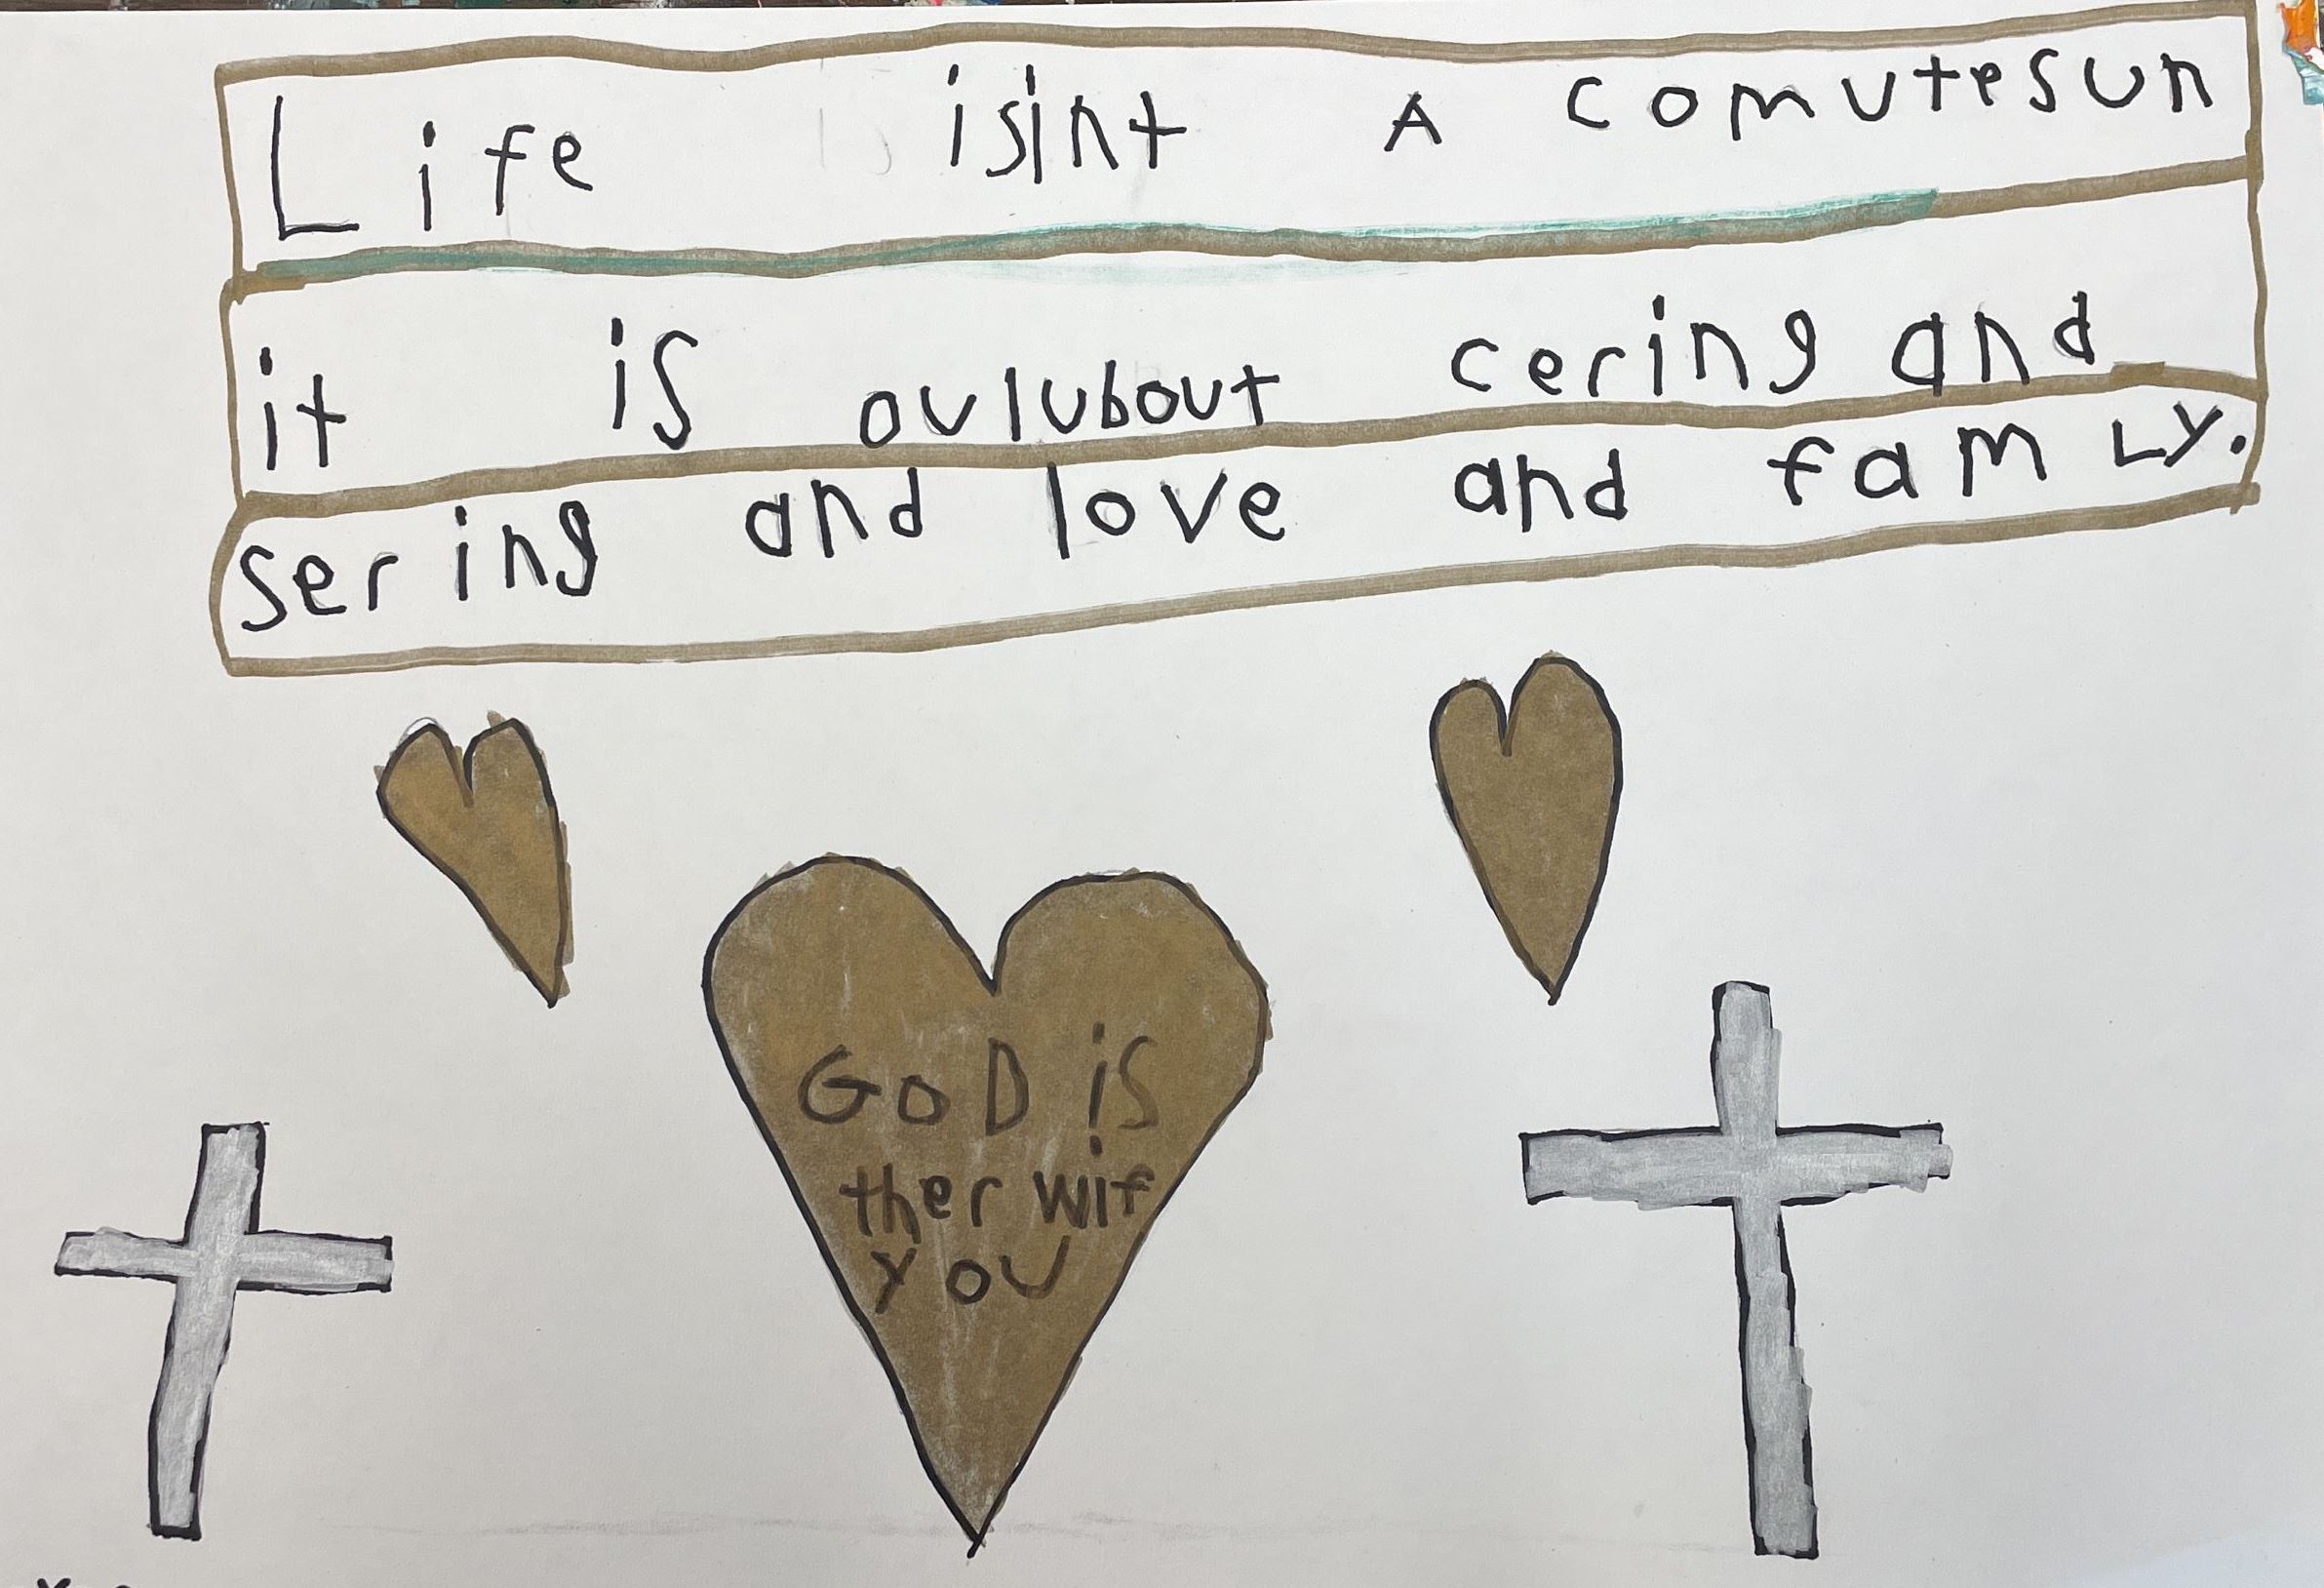 Life isint A comutesun
it is oulubout cering and
sering and love and famLy.
GoD is
ther wif
you